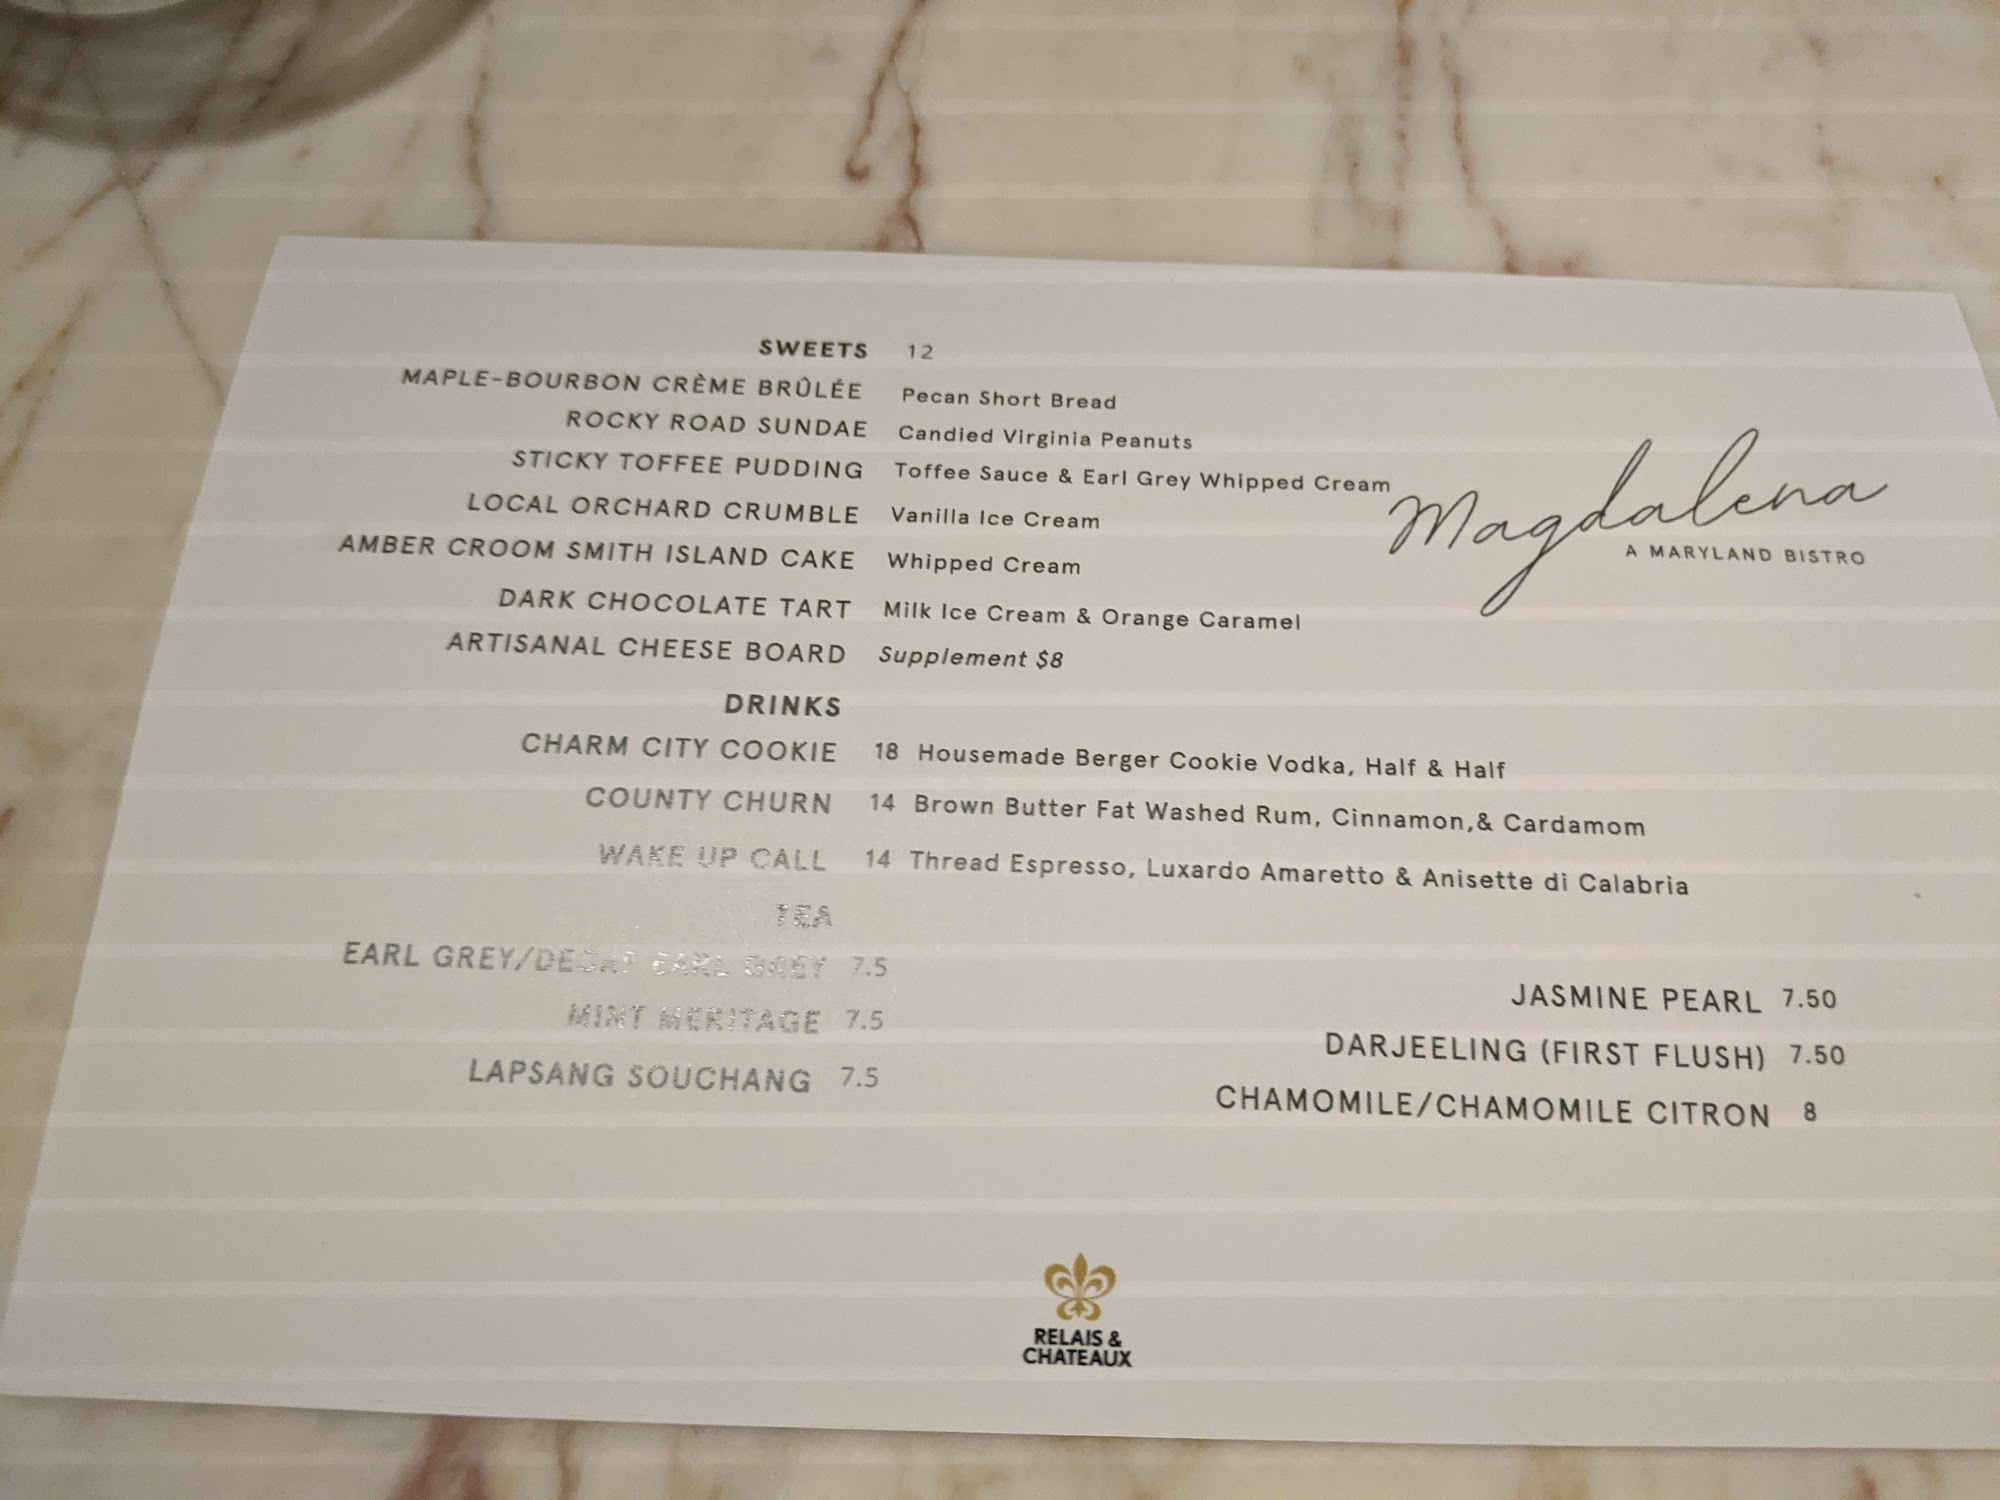 SWEETS 12
MAPLE-BOURBON CRÈME BRÛLÉE Pecan Short Bread
ROCKY ROAD SUNDAE Candied Virginia Peanuts
STICKY TOFFEE PUDDING Toffee Sauce & Earl Grey Whipped Cream
LOCAL ORCHARD CRUMBLE Vanilla Ice Cream
AMBER CROOM SMITH ISLAND CAKE Whipped Cream
DARK CHOCOLATE TART Milk Ice Cream & Orange Caramel
ARTISANAL CHEESE BOARD Supplement $8
Magdalena
A MARYLAND BISTRO
DRINKS
CHARM CITY COOKIE 18 Housemade Berger Cookie Vodka, Half & Half
COUNTY CHURN 14 Brown Butter Fat Washed Rum, Cinnamon,& Cardamom
WAKE UP CALL 14 Thread Espresso, Luxardo Amaretto & Anisette di Calabria
TEA
EARL GREY/DECAF EARL GREY 7.5
MINT MERITAGE 7.5
LAPSANG SOUCHANG 7.5
JASMINE PEARL 7.50
DARJEELING (FIRST FLUSH) 7.50
CHAMOMILE/CHAMOMILE CITRON 8
RELAIS &
CHATEAUX